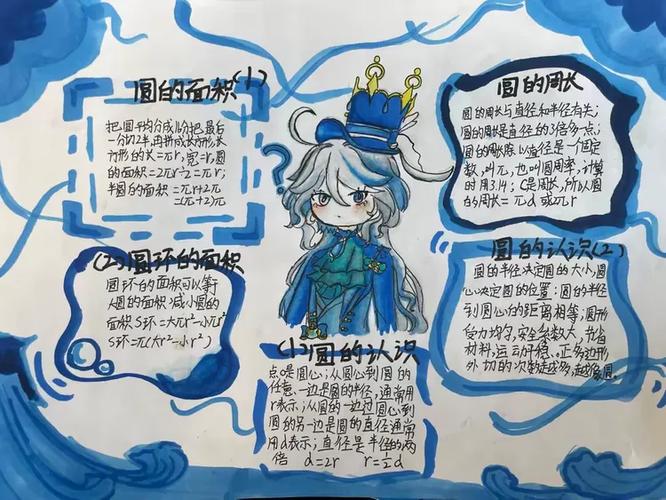 圆的面积(1)
把一圆平均分成16分把最后
一分切2半,由拼成长方形,长
方形的长=πr,宽=r,圆
的面积=2πr÷2=πr;
半圆的面积=πr+2π
=(π+2)π
(2)圆环的面积
圆环的面积可以等
大圆的面积减小圆的
面积S环=大πr²-小πr²
S环=π(大r²-小r²)
?
(1)圆的认识
点o是圆心;从圆心到圆的
任意一边是圆的半径,通常用
r表示;从圆的一边过圆心到
圆的另一边是圆的直径通常
用d表示;直径是半径的两
倍 d=2r r=½d
圆的周长
圆的周长与直径和半径有关;
圆的周长是直径的3倍多一点;
圆的周长除以直径是一个固定
数,叫π,也叫圆周率;计算
时用3.14;C是周长,所以圆
的周长=πd或πr
圆的认识(2)
圆的半径决定圆的大小,圆
心决定圆的位置:圆的半径
到圆心的距离相等;圆形
受力均匀,安全系数大,节省
材料,运动平稳。正多边形
外切的次数越多,越像圆。